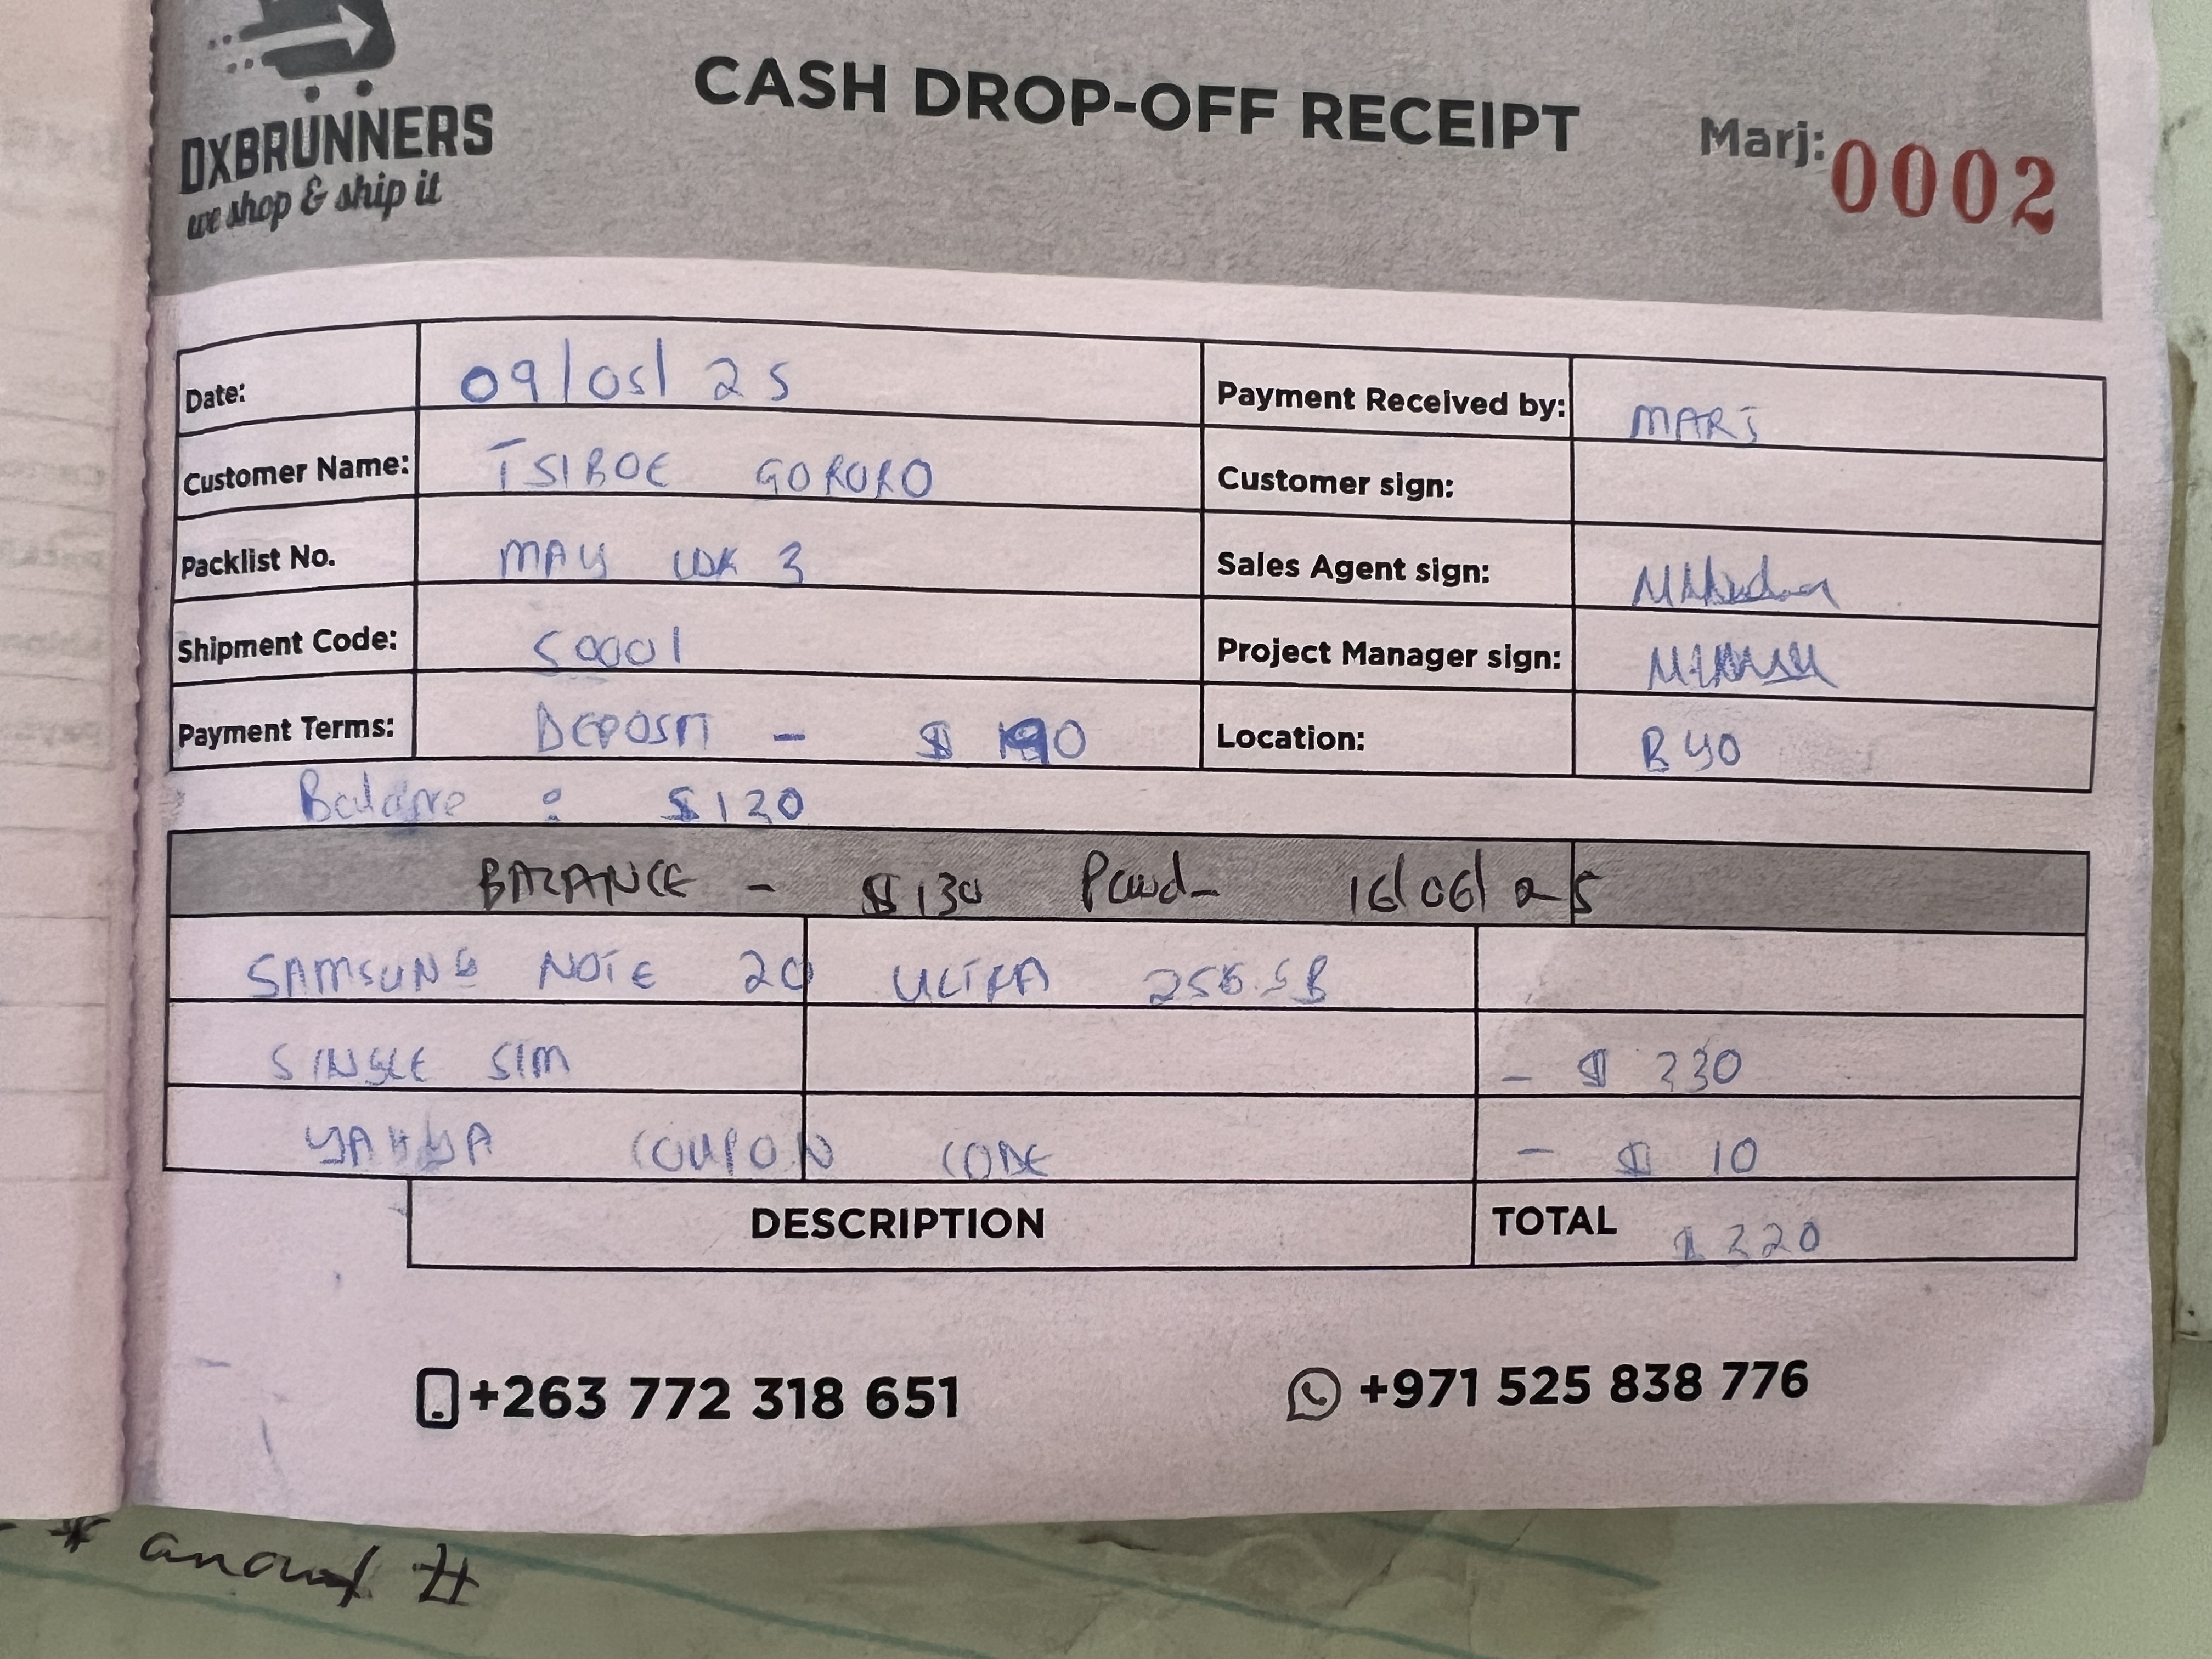 DXBRUNNERS
we shop & ship it
CASH DROP-OFF RECEIPT
Marj: 0002
Date: 09/05/25
Payment Received by: MARJ
Customer Name: TSIBOE GORORO
Customer sign:
Packlist No. MAY WK 3
Sales Agent sign:
Shipment Code: S0001
Project Manager sign:
Payment Terms: DEPOSIT - $ 190
Location: BYO
Balance : $130
BALANCE - $130 Paid - 16/06/25
SAMSUNG NOTE 20 ULTRA 256GB
SINGLE SIM - $ 330
YAHYA COUPON CODE - $ 10
DESCRIPTION TOTAL $320
+263 772 318 651
+971 525 838 776
* amount